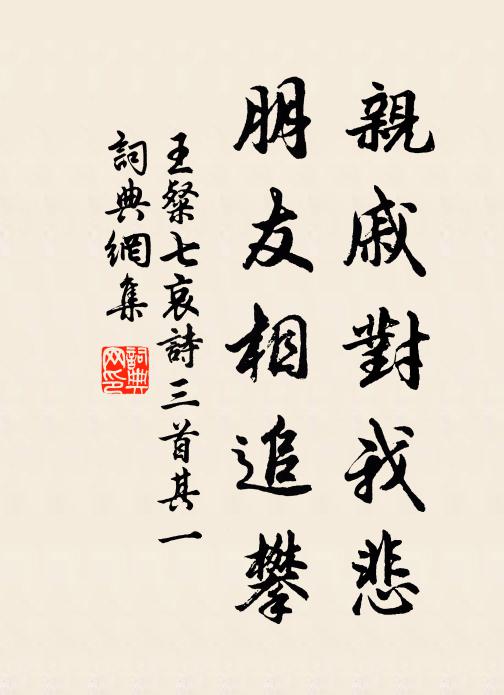 親戚對我悲
朋友相追攀
王粲七哀詩三首其一
詞典網集
詞典
网印